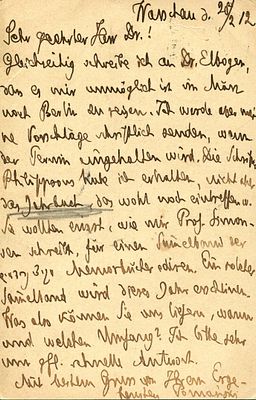 Warschau d. 26/2 12
Sehr geehrter Herr Dr.!
Gleichzeitig schreibe ich an Dr. Elbogen,
das es mir unmöglich ist im März
nach Berlin zu reisen. Ich werde aber mei-
ne Vorschläge schriftlich senden, wann
der Termin eingehalten wird. Die Schrift
Philippsons habe ich erhalten, nicht aber
das Jahrbuch, das wohl noch eintreffen w.
Sie wollten einst, wie mir Prof. Simon-
sen schreibt, für einen Sammelband der
Memorbücher edieren. Ein solcher
Samelband wird dieses Jahr erscheinen.
Was also können Sie uns liefern, wann
und welchen Umfang? Ich bitte sehr
um gfl. schnelle Antwort.
Mit bestem Gruss von Ihrem Erge-
bensten Poznanski